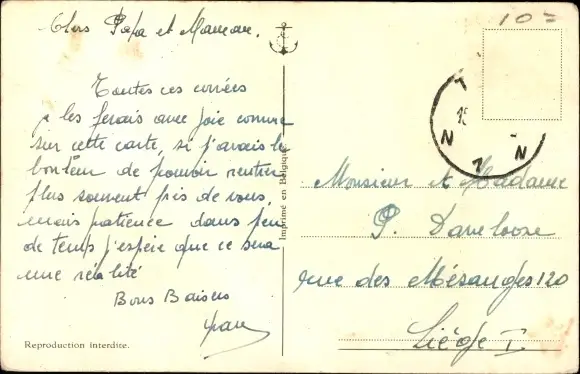 10 =
Chers Papa et Maman,
Toutes ces corvées
je les ferais avec joie comme
sur cette carte, si j'avais le
bonheur de pouvoir rentrer
plus souvent près de vous,
mais patience dans peu
de temps j'espère que ce sera
une réalité
Bons Baisers
Reproduction interdite.
Imprimé en Belgique
Monsieur et Madame
P.
rue des Mésanges 120
Liége I